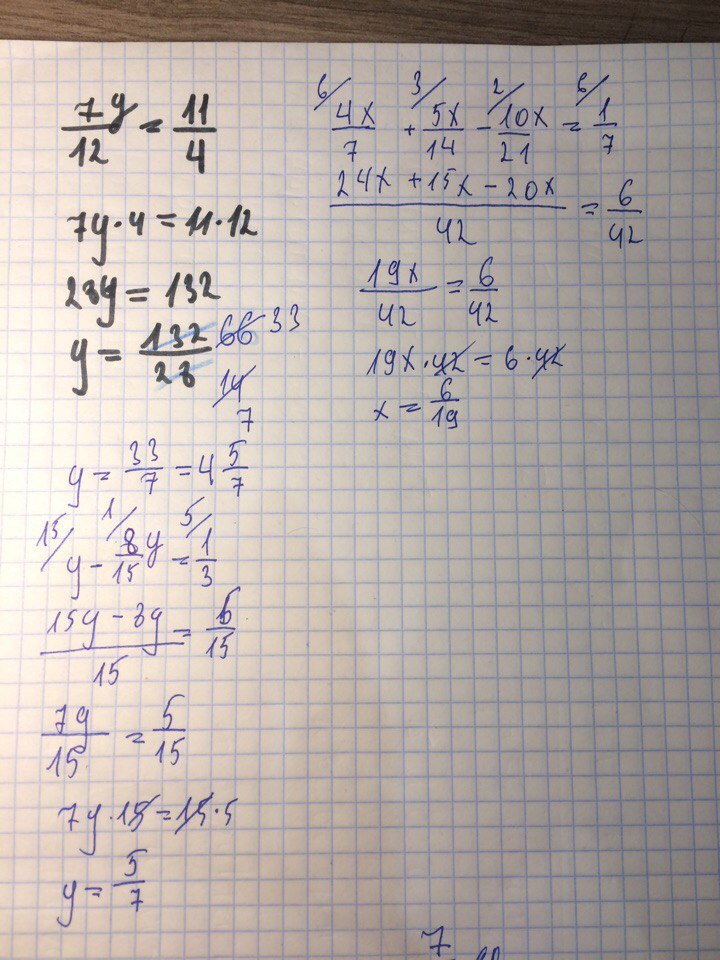 7y/12 = 11/4
7y·4 = 11·12
28y = 132
y = 132/28 66 33
14
7
y = 33/7 = 4 5/7
15/ 1/ 5/
y - 8/15 y = 1/3
(15y - 8y)/15 = 5/15
7y/15 = 5/15
7y·15 = 15·5
y = 5/7
6/ 3/ 2/ 6/
4x/7 + 5x/14 - 10x/21 = 1/7
(24x + 15x - 20x)/42 = 6/42
19x/42 = 6/42
19x·42 = 6·42
x = 6/19
7